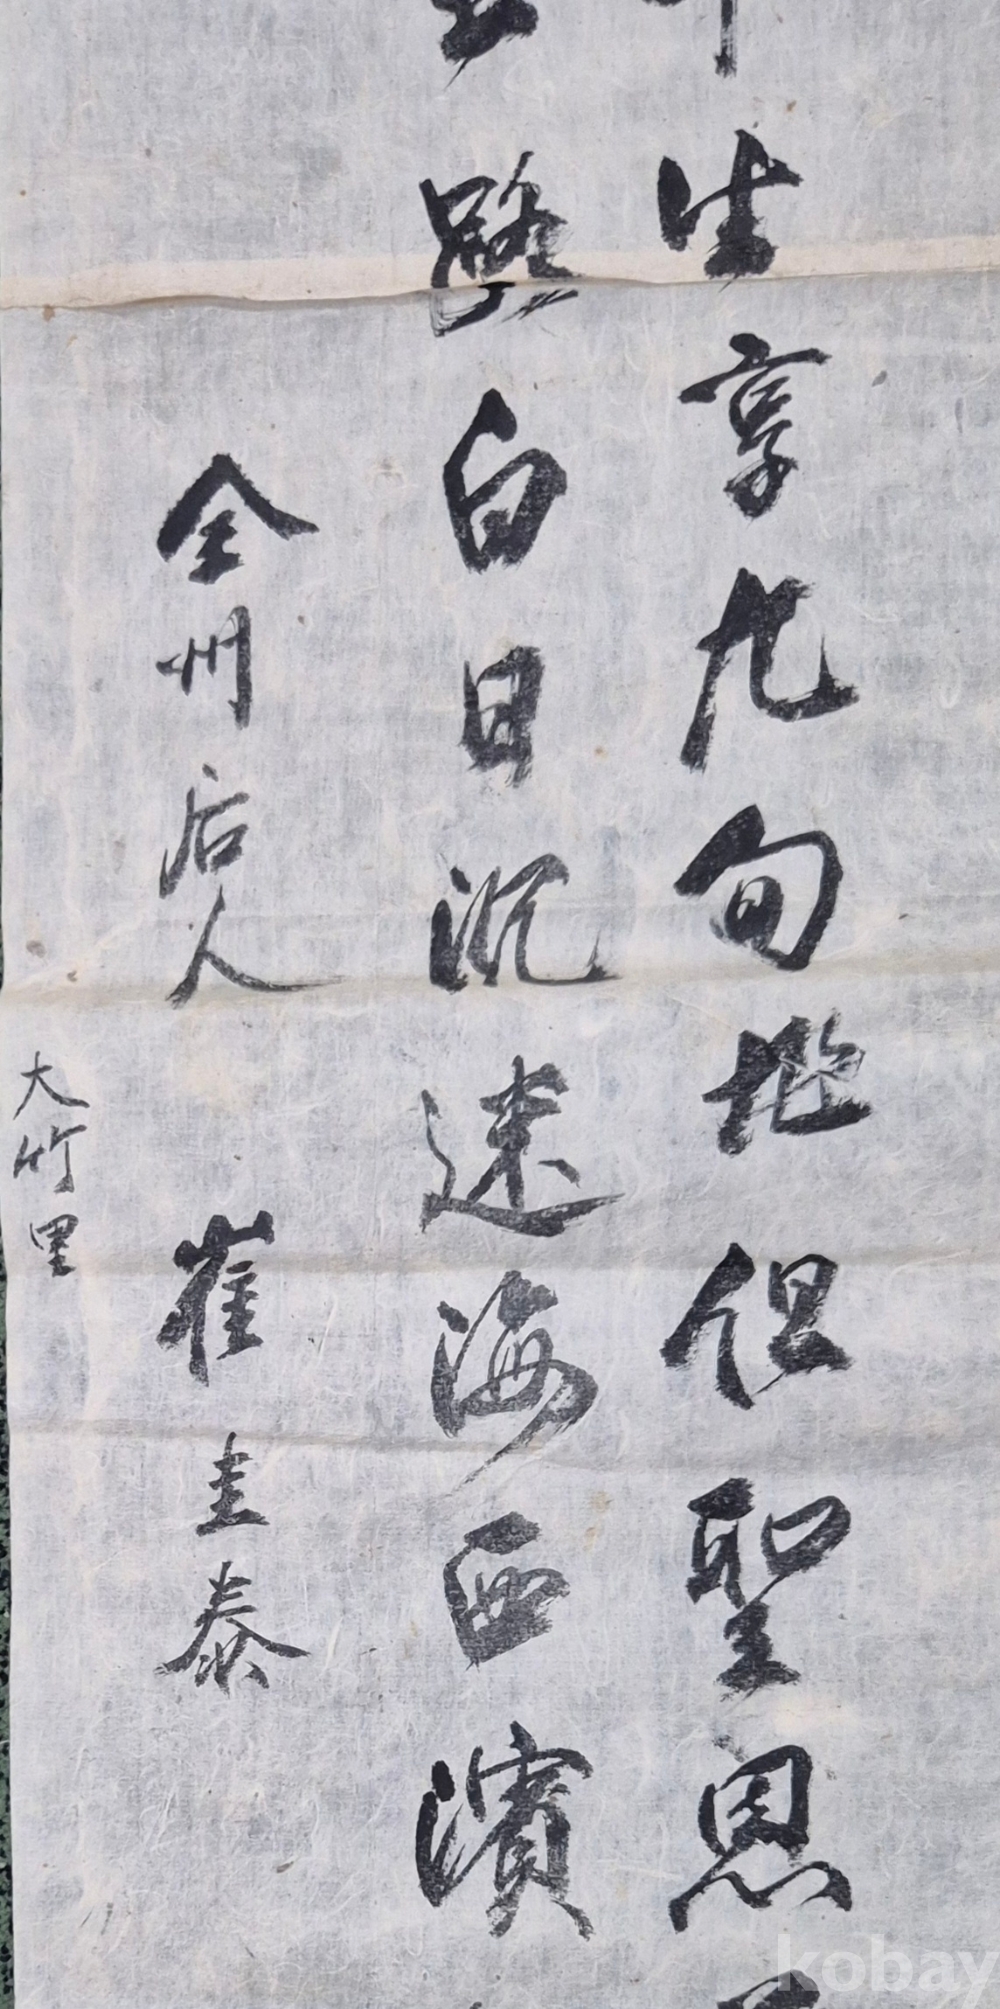 生享九旬地但聖恩
路白日沉迷海西濱
全州后人 崔圭泰
大竹里
kobay